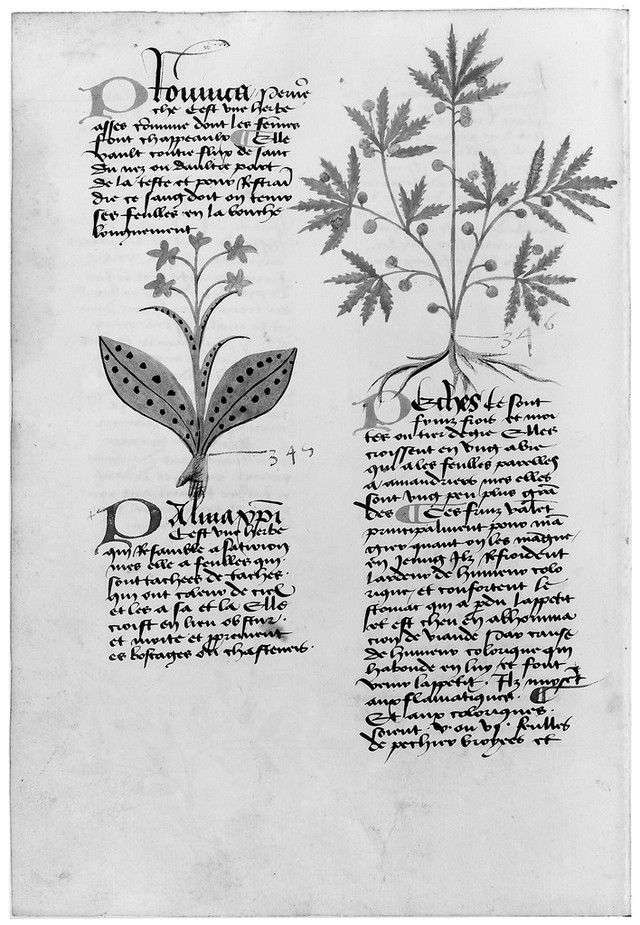 Pervē
che Cest vne herbe
asses cōmune dont les fēmes
font chappeaulx Elle
vault contre flux de sanc
du nez ou daultre part
de la teste et pour Restrain
dre ce sang doit on tenir
ses feulles en la bouche
longuement
346
345
Palma xp̄i
Cest vne herbe
qui Resamble a satirion
mes elle a feulles qui
sont tachees de taches
qui ont couleur de ciel
et les a sa et la Elle
croist en lieu obscur
et moite et
es boscages ou chasteners
Pesches Ce sont
fruiz frois et moi
tes ou tier degre Elles
croissent en vng abre
qui a les feulles parelles
a amandriers mes elles
sont vng peu plus grā
des Ces fruiz valēt
principalment pour mā
gier quant on les māgue
en Ilz Refroident
lardeur de humeur colo
rique et confortent le
stomac qui a pdu lappetit
et est cheu en abhomina
cion de viande Par cause
de humeur colorique qui
habonde en luy et font
venir lappetit Ilz
aux flamatiques
Et aux coloriques
soient v ou vj feulles
de peschier broyees et